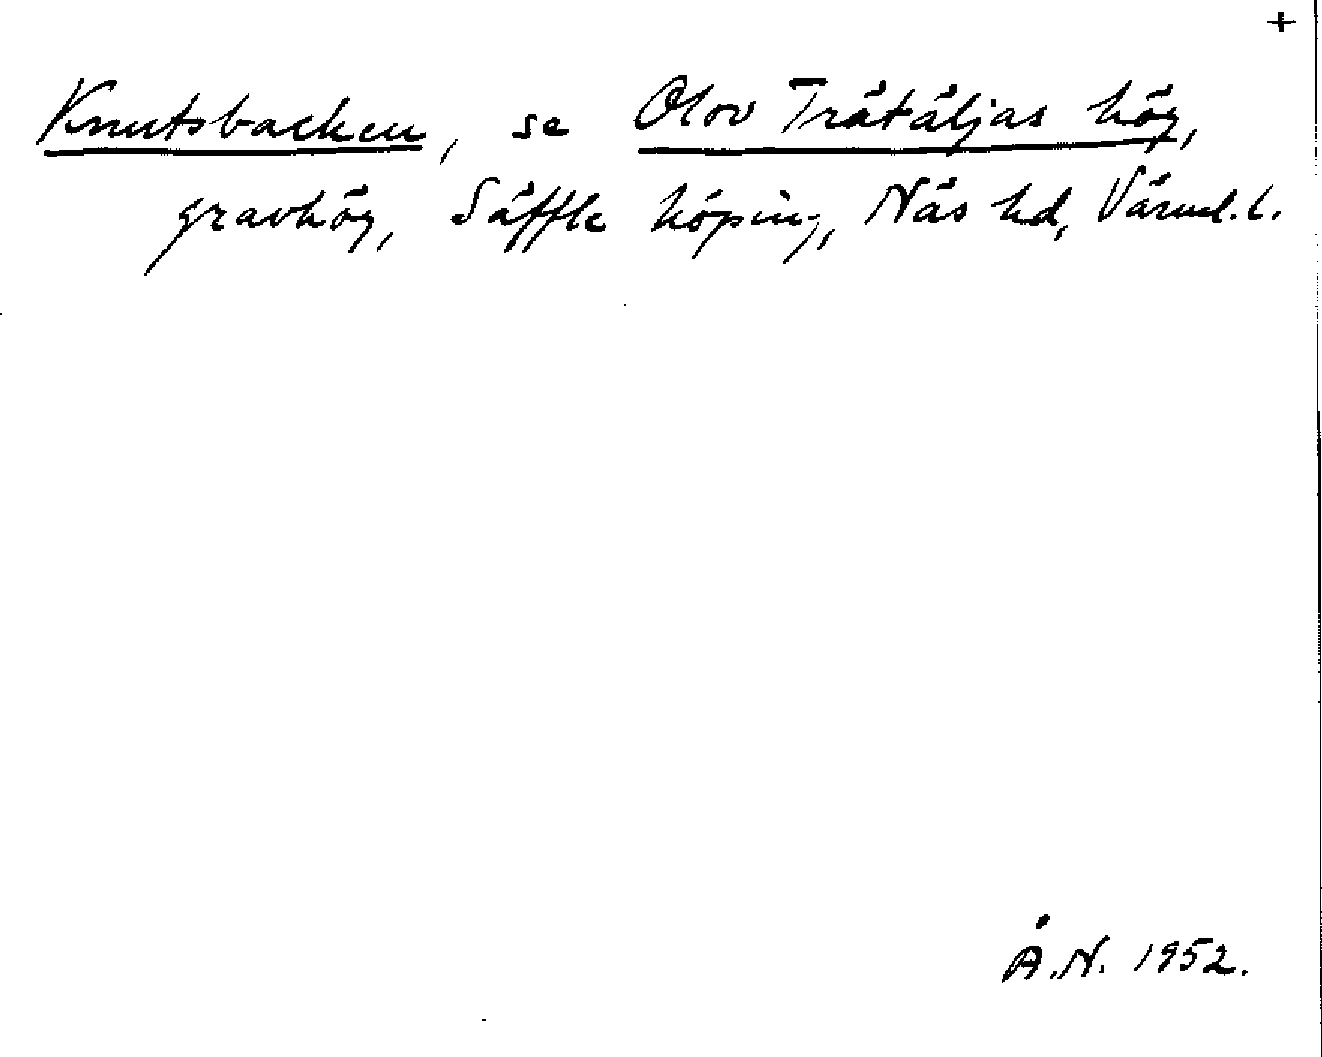 +
Knutsbacken, se Olov Trätäljas hög,
gravhög, Säffle köping, Näs hd, Värml. l.
Å.N. 1952.